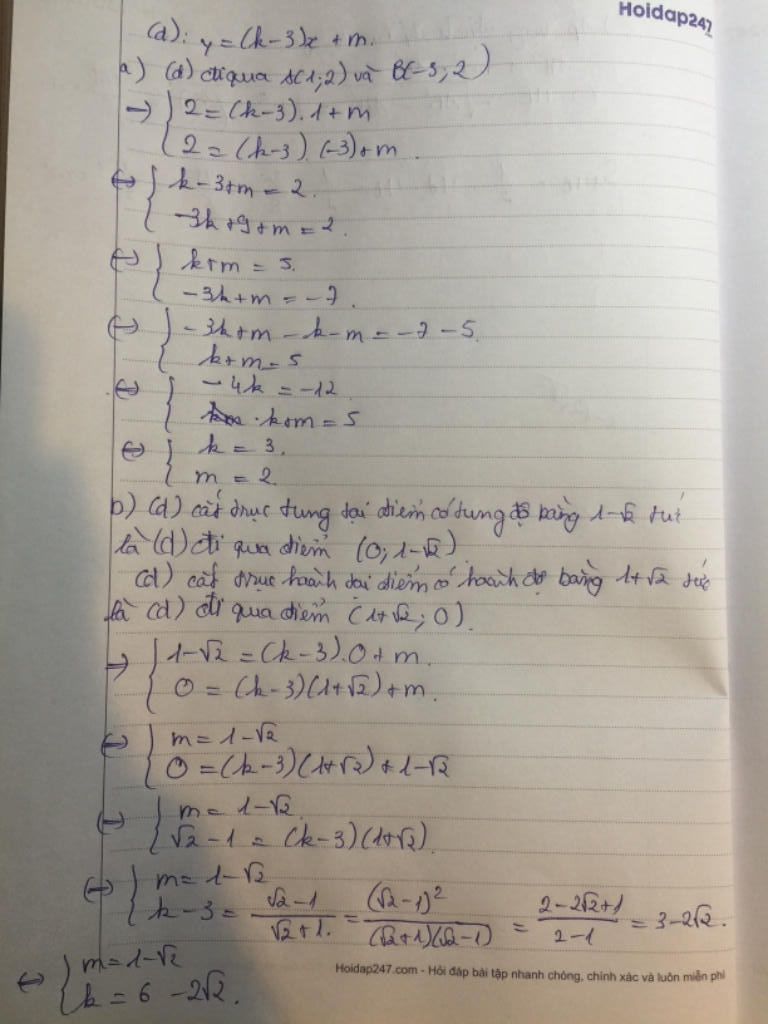 Hoidap247
(d): y = (k-3)x + m.
a) (d) đi qua A(1;2) và B(-3;2)
→ { 2 = (k-3).1+m
2 = (k-3).(-3)+m.
⇔ { k-3+m = 2.
-3k+9+m = 2.
⇔ { k+m = 5.
-3k+m = -7.
⇔ { -3k+m-k-m = -7-5.
k+m=5
⇔ { -4k = -12
k+m = 5
⇔ { k = 3.
m = 2.
b) (d) cắt trục tung tại điểm có tung độ bằng 1-√2 tức
là (d) đi qua điểm (0; 1-√2).
(d) cắt trục hoành tại điểm có hoành độ bằng 1+√2 tức
là (d) đi qua điểm (1+√2; 0).
→ { 1-√2 = (k-3).0+m.
0 = (k-3)(1+√2)+m.
⇔ { m = 1-√2
0 = (k-3)(1+√2)+1-√2
⇔ { m = 1-√2.
√2-1 = (k-3)(1+√2).
⇔ { m = 1-√2
k-3 = (√2-1)/(√2+1.) = (√2-1)²/((√2+1)(√2-1)) = (2-2√2+1)/(2-1) = 3-2√2.
⇔ { m = 1-√2
k = 6-2√2.
Hoidap247.com - Hỏi đáp bài tập nhanh chóng, chính xác và luôn miễn phí